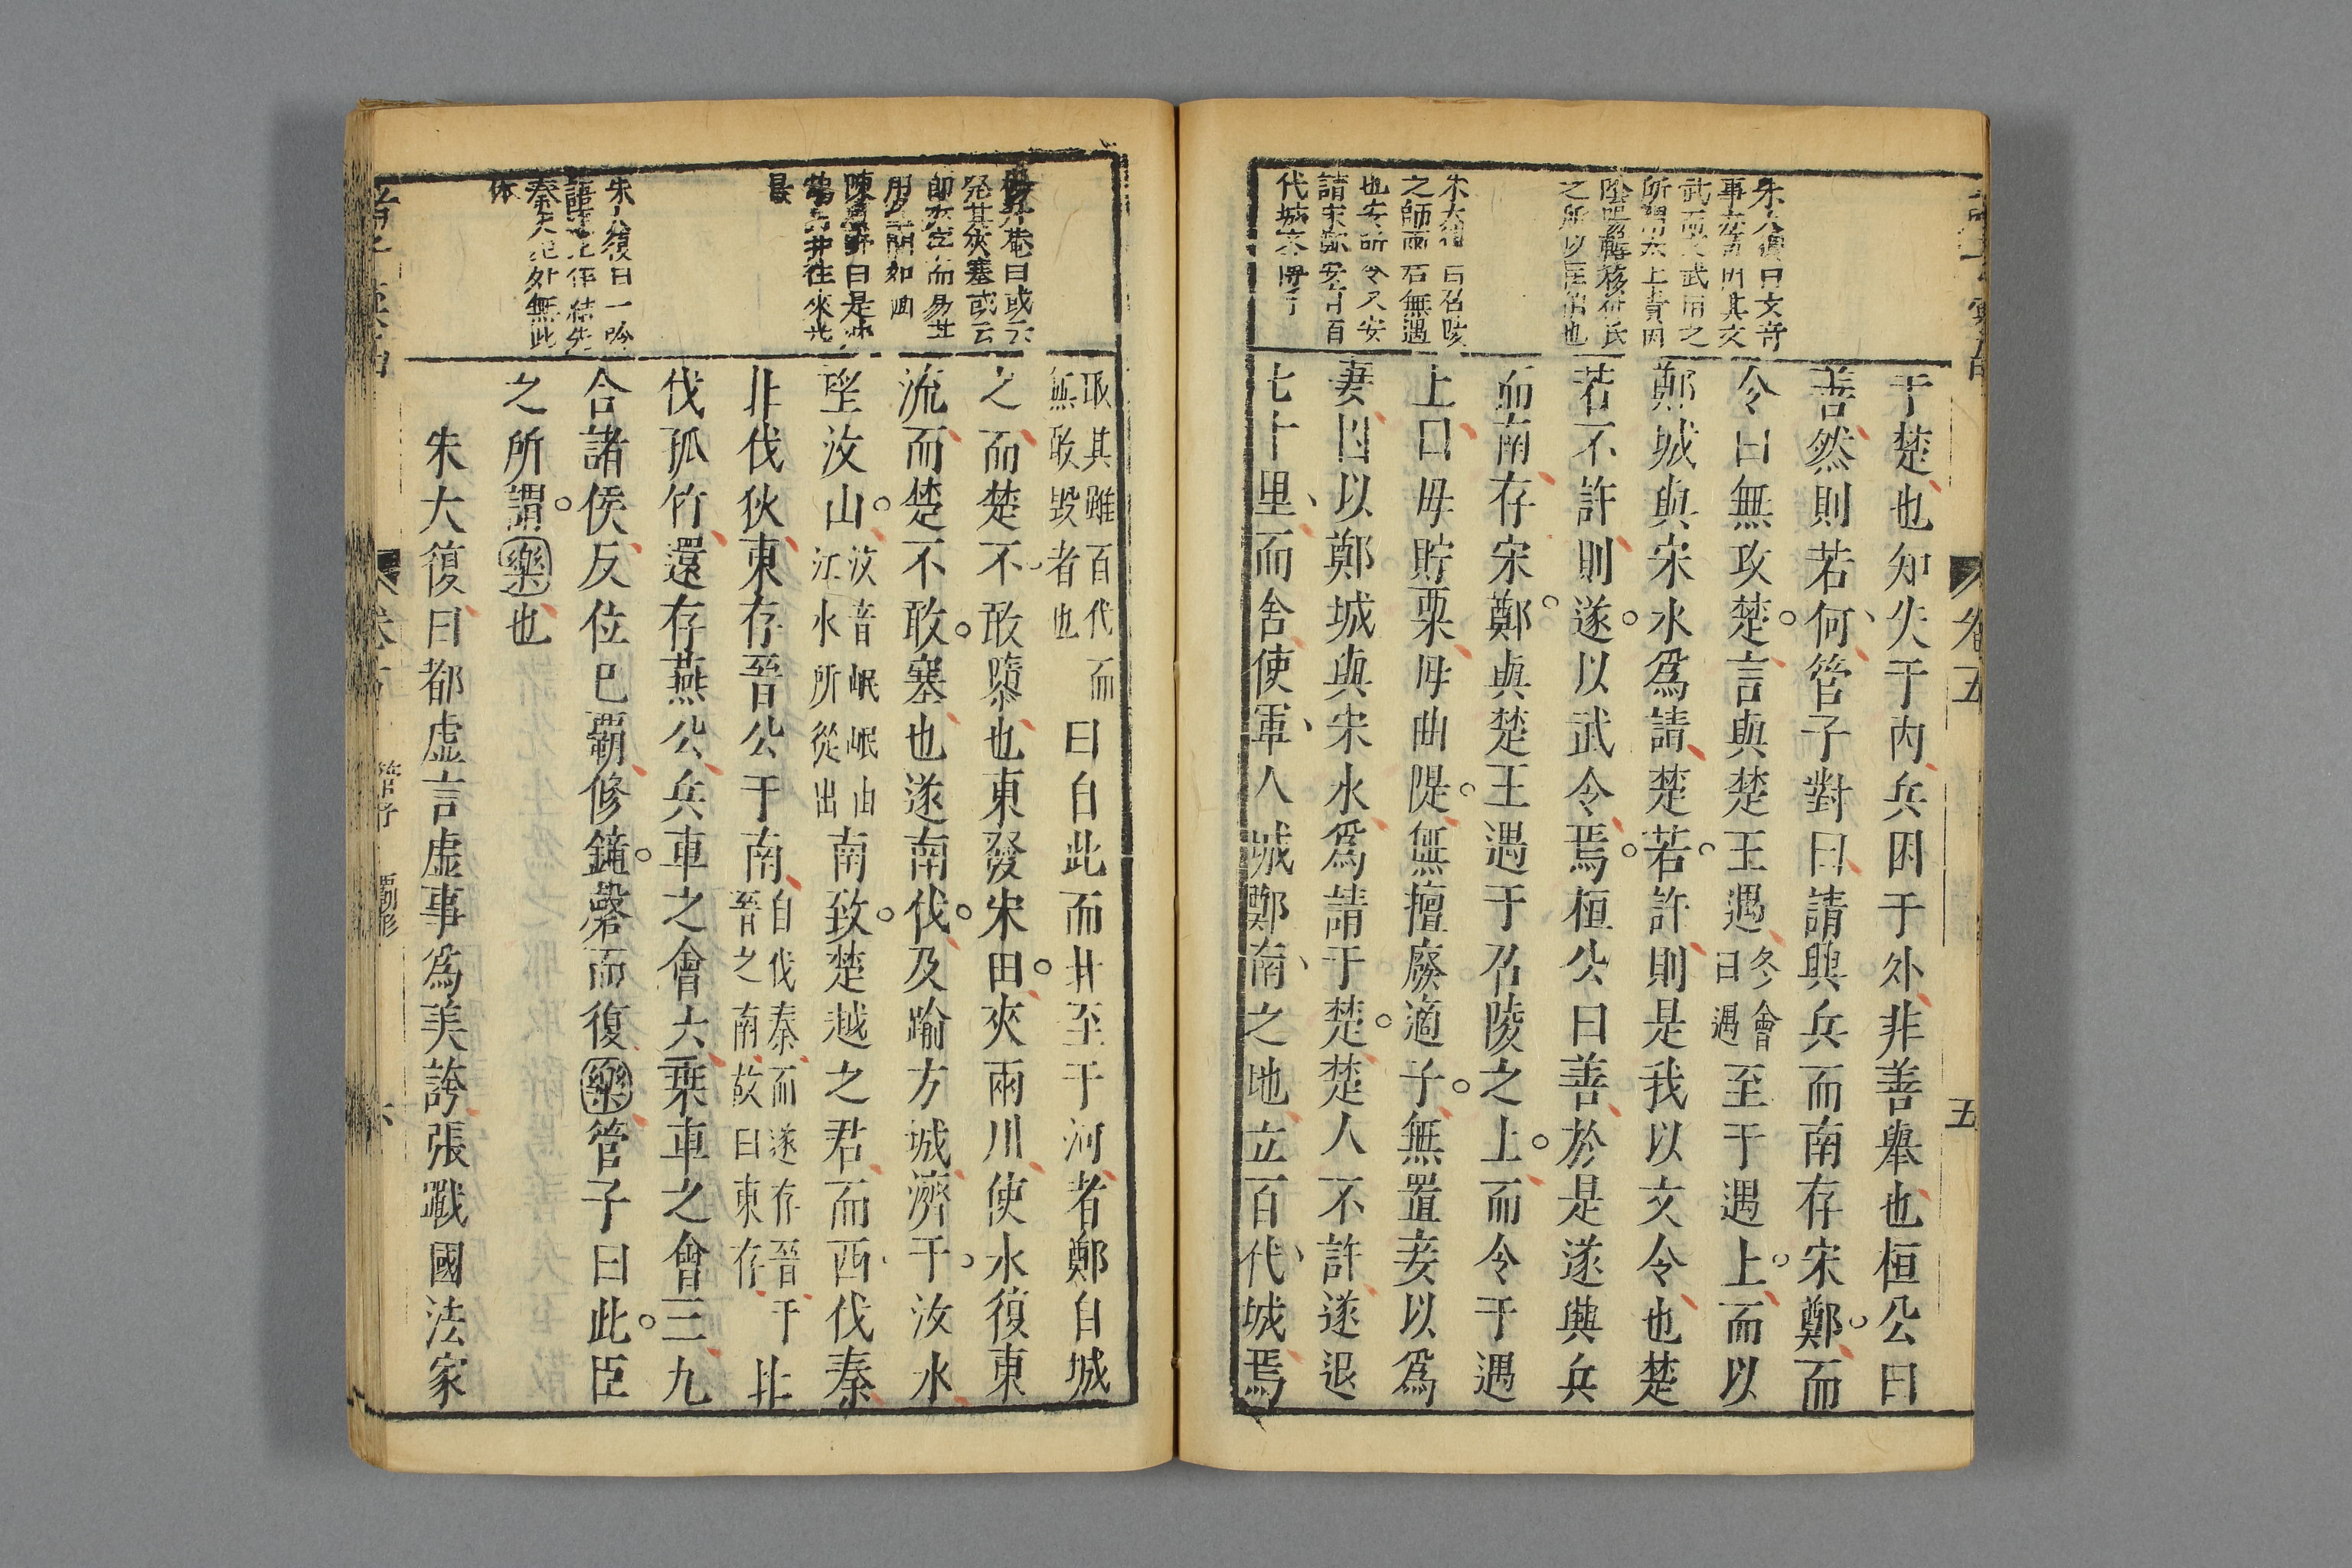 卷五
五
朱大復曰文奇
事亦奇
武而文武用之
陰陽轉移
之所以
朱大復曰召陵
之師而石無遇
也安所令又安
請宋鄭安有百
代城
于楚也知失于內兵困于外非善舉也桓公曰
善然則若何管子對曰請興兵而南存宋鄭而
令曰無攻楚言與楚王遇冬會曰遇至于遇上而以
鄭城與宋水為請楚若許則是我以文令也楚
若不許則遂以武令焉桓公曰善於是遂興兵
而南存宋鄭與楚王遇于召陵之上而令于遇
上曰毋貯粟毋曲隄無擅廢適子無置妾以為
妻因以鄭城與宋水為請于楚楚人不許遂退
七十里而舍使軍人城鄭南之地立百代城焉
菴曰或云
夾塞或云
而易
曰是
井往來
朱大復曰一吟
秦處無此
體
取其雖百代而無敢毀者也曰自此而北至于河者鄭自城
之而楚不敢隳也東發宋田夾兩川使水復東
流而楚不敢塞也遂南伐及踰方城濟于汝水
望汶山汶音岷岷由江水所從出南致楚越之君而西伐秦
北伐狄東存晉公于南自伐秦而遂存晉于晉之南故曰東存北
伐孤竹還存燕公兵車之會六乘車之會三九
合諸侯反位已霸修鐘磬而復樂管子曰此臣
之所謂樂也
朱大復曰都虛言虛事為美誇張戰國法家
管子 霸形